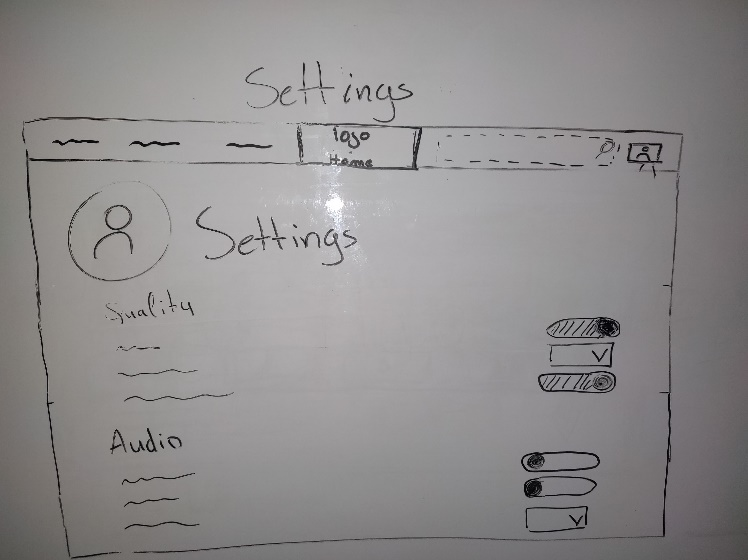 Settings
logo
Home
Settings
Quality
Audio